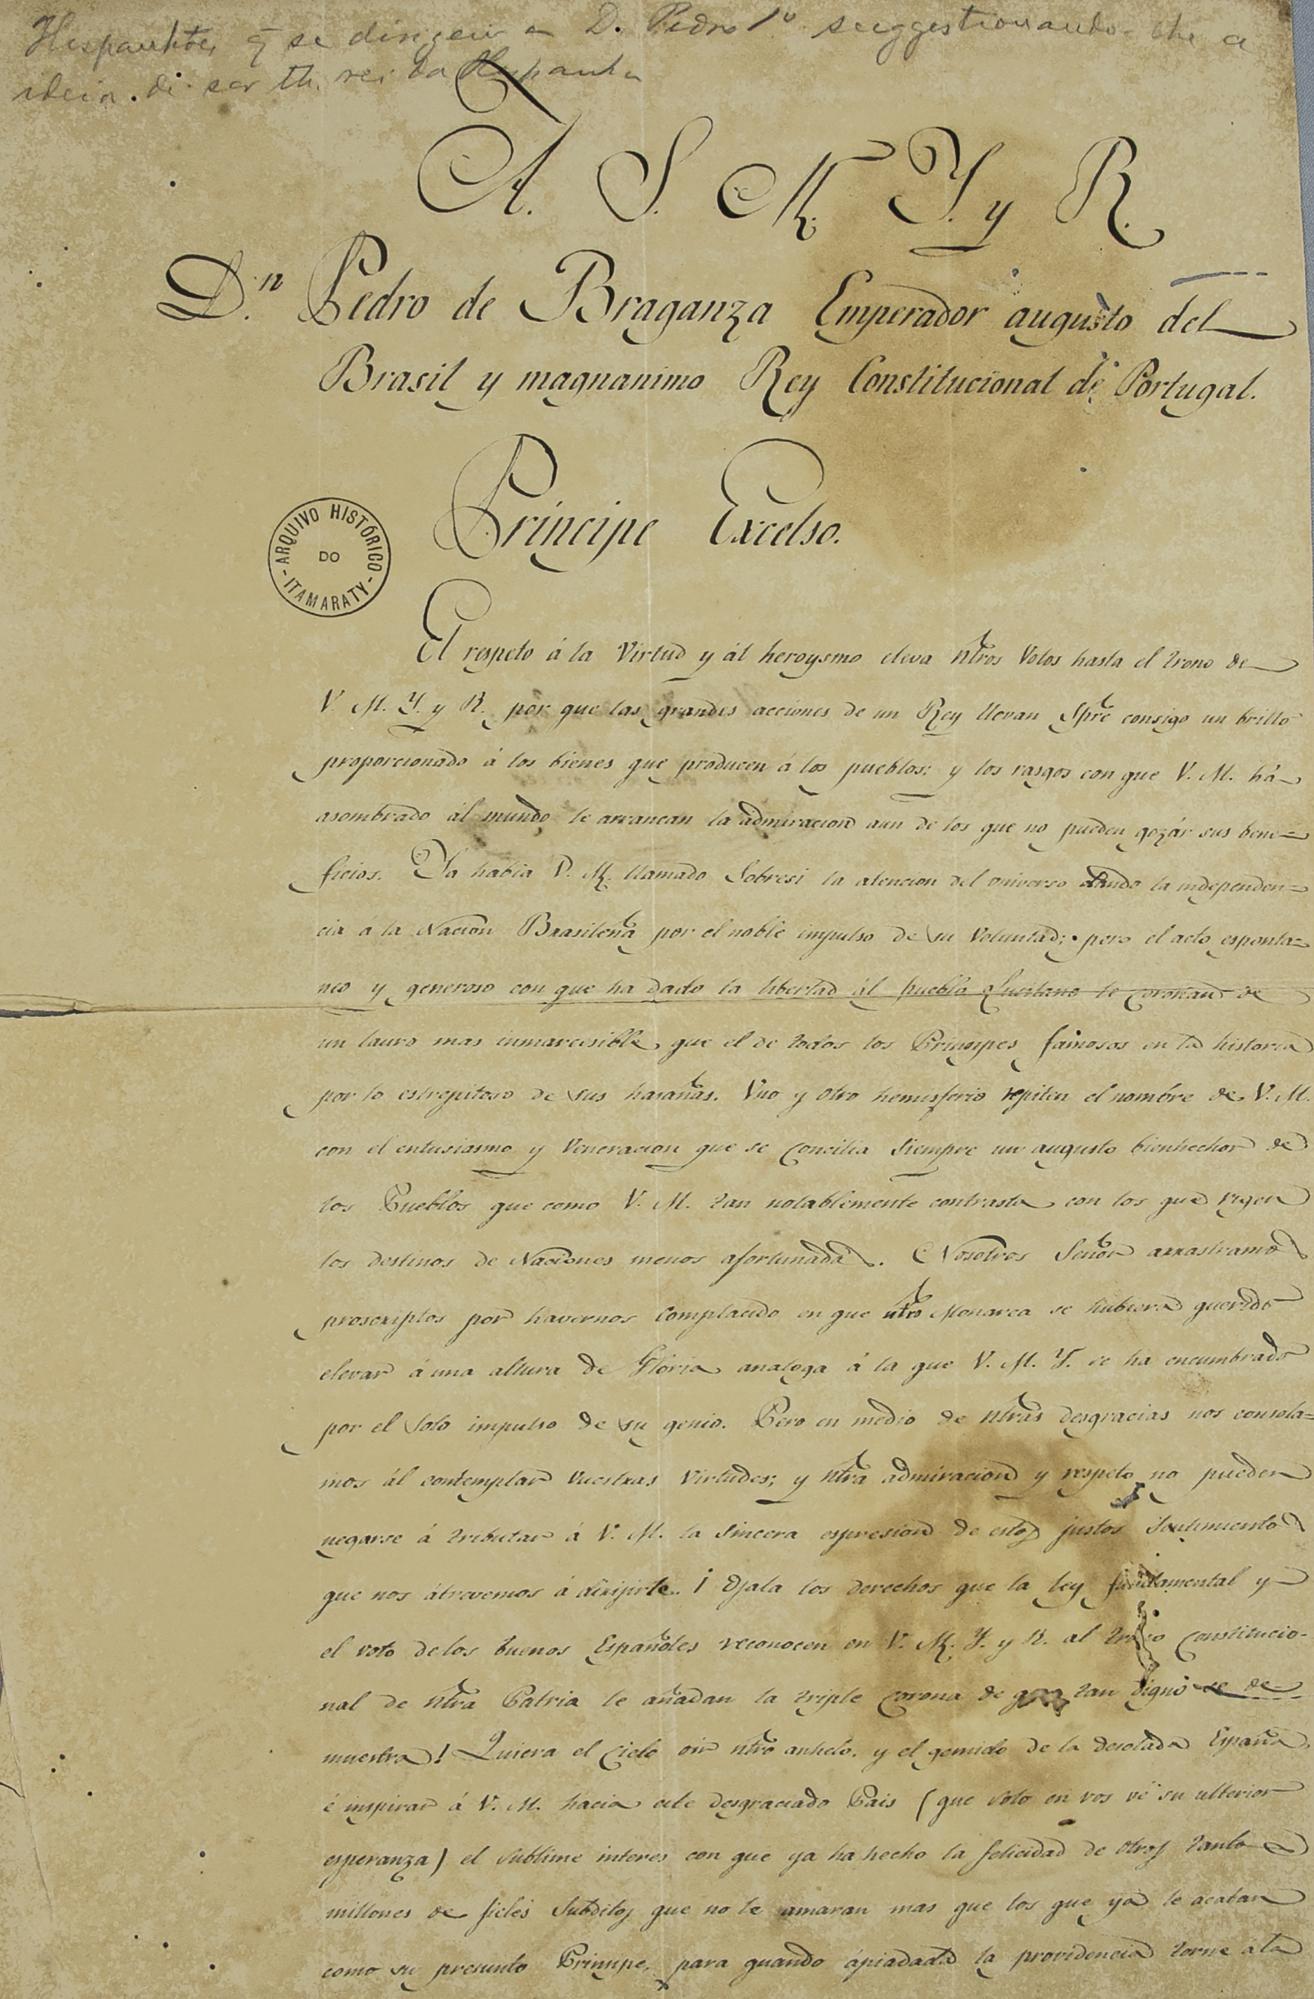 Hespanhóes q̃ se dirigem a D. Pedro 1º suggestionando-lhe a
ideia de ser th. rei da Hespanha
A. S. M. Y. y R.
D.n Pedro de Braganza Emperador augusto del
Brasil y magnanimo Rey Constitucional de Portugal.
Principe Excelso.
ARQUIVO HISTÓRICO
DO
ITAMARATY
El respeto á la Virtud y ál heroysmo eleva ntros Votos hasta el trono de
V. M. Y. y R. por que las grandes acciones de un Rey llevan Spre consigo un brillo
proporcionado á los bienes que producen á los pueblos; y los rasgos con que V. M. há
asombrado ál mundo le arrancan la admiracion aun de los que no pueden gozár sus bene=
ficios. Ya habia V. M. llamado Sobresi la atencion del universo dando la independen=
cia á la Nacion Brasileña por el noble impulso de su Voluntad; pero el acto esponta=
neo y generoso con que ha dado la libertad ál pueblo Lusitano le coronan de
un lauro mas inmarcesible que el de todos los Principes famosos en la historia
por lo estrepitoso de sus hazañas. Vno y otro hemisferio repiten el nombre de V. M.
con el entusiasmo y Veneracion que se concilia siempre un augusto bienhechor de
los Pueblos que como V. M. tan notablemente contrasta con los que rigen
los destinos de Naciones menos afortunadas. Nosotros Señor arrastramos
proscriptos por havernos complacido en que ntro Monarca se hubiera querido
elevar á una altura de Gloria analoga á la que V. M. Y. se ha encumbrado
por el solo impulso de su genio. Pero en medio de ntras desgracias nos consola=
mos ál contemplar Vuestras Virtudes; y ntra admiracion y respeto no pueden
negarse á tributar á V. M. la sincera espresion de estos justos Sentimientos
que nos átrevemos á dirijirle. ¡ Ojala los derechos que la ley fundamental y
el voto de los buenos Españoles reconocen en V. M. Y. y R. al trono constitucio-
nal de ntra Patria le añadan la triple corona de que tan digno se de
muestra! Quiera el Cielo oir ntro anhelo, y el gemido de la desolada España,
é inspirar á V. M. hacia este desgraciado Pais (que solo en vos vé su ulterior
esperanza) el sublime interes con que ya ha hecho la felicidad de otros tantos
millones de fieles Subditos que no le amaran mas que los que ya le acatan
como su presunto Principe, para quando ápiadada la providencia torne á la